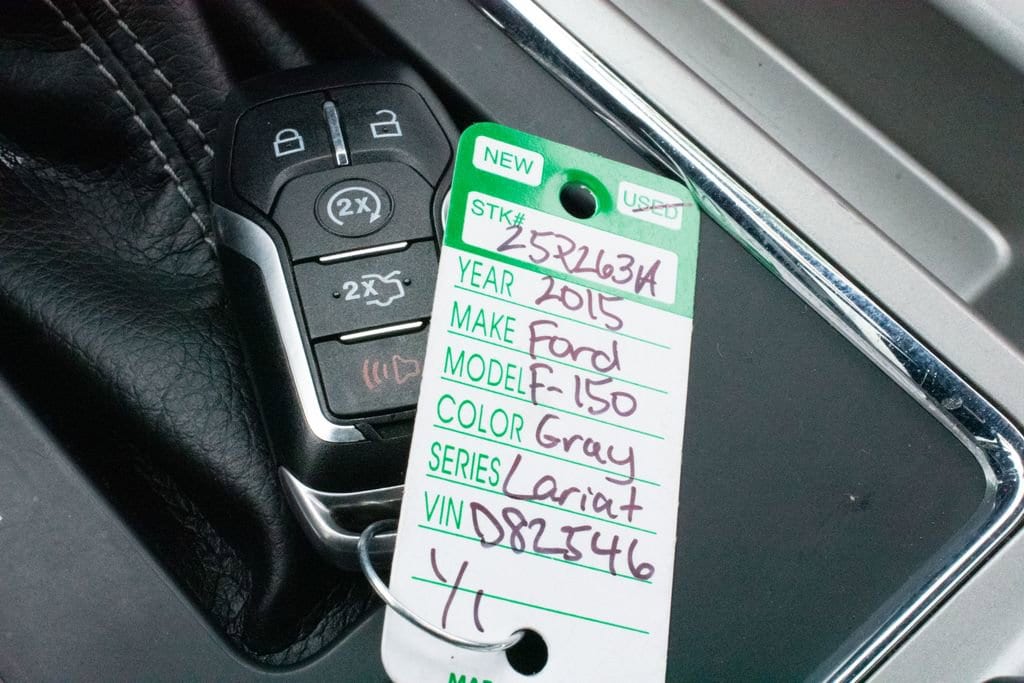 2X
2X
NEW USED
STK#
25P263A
YEAR 2015
MAKE Ford
MODEL F-150
COLOR Gray
SERIES Lariat
VIN D82546
1/1